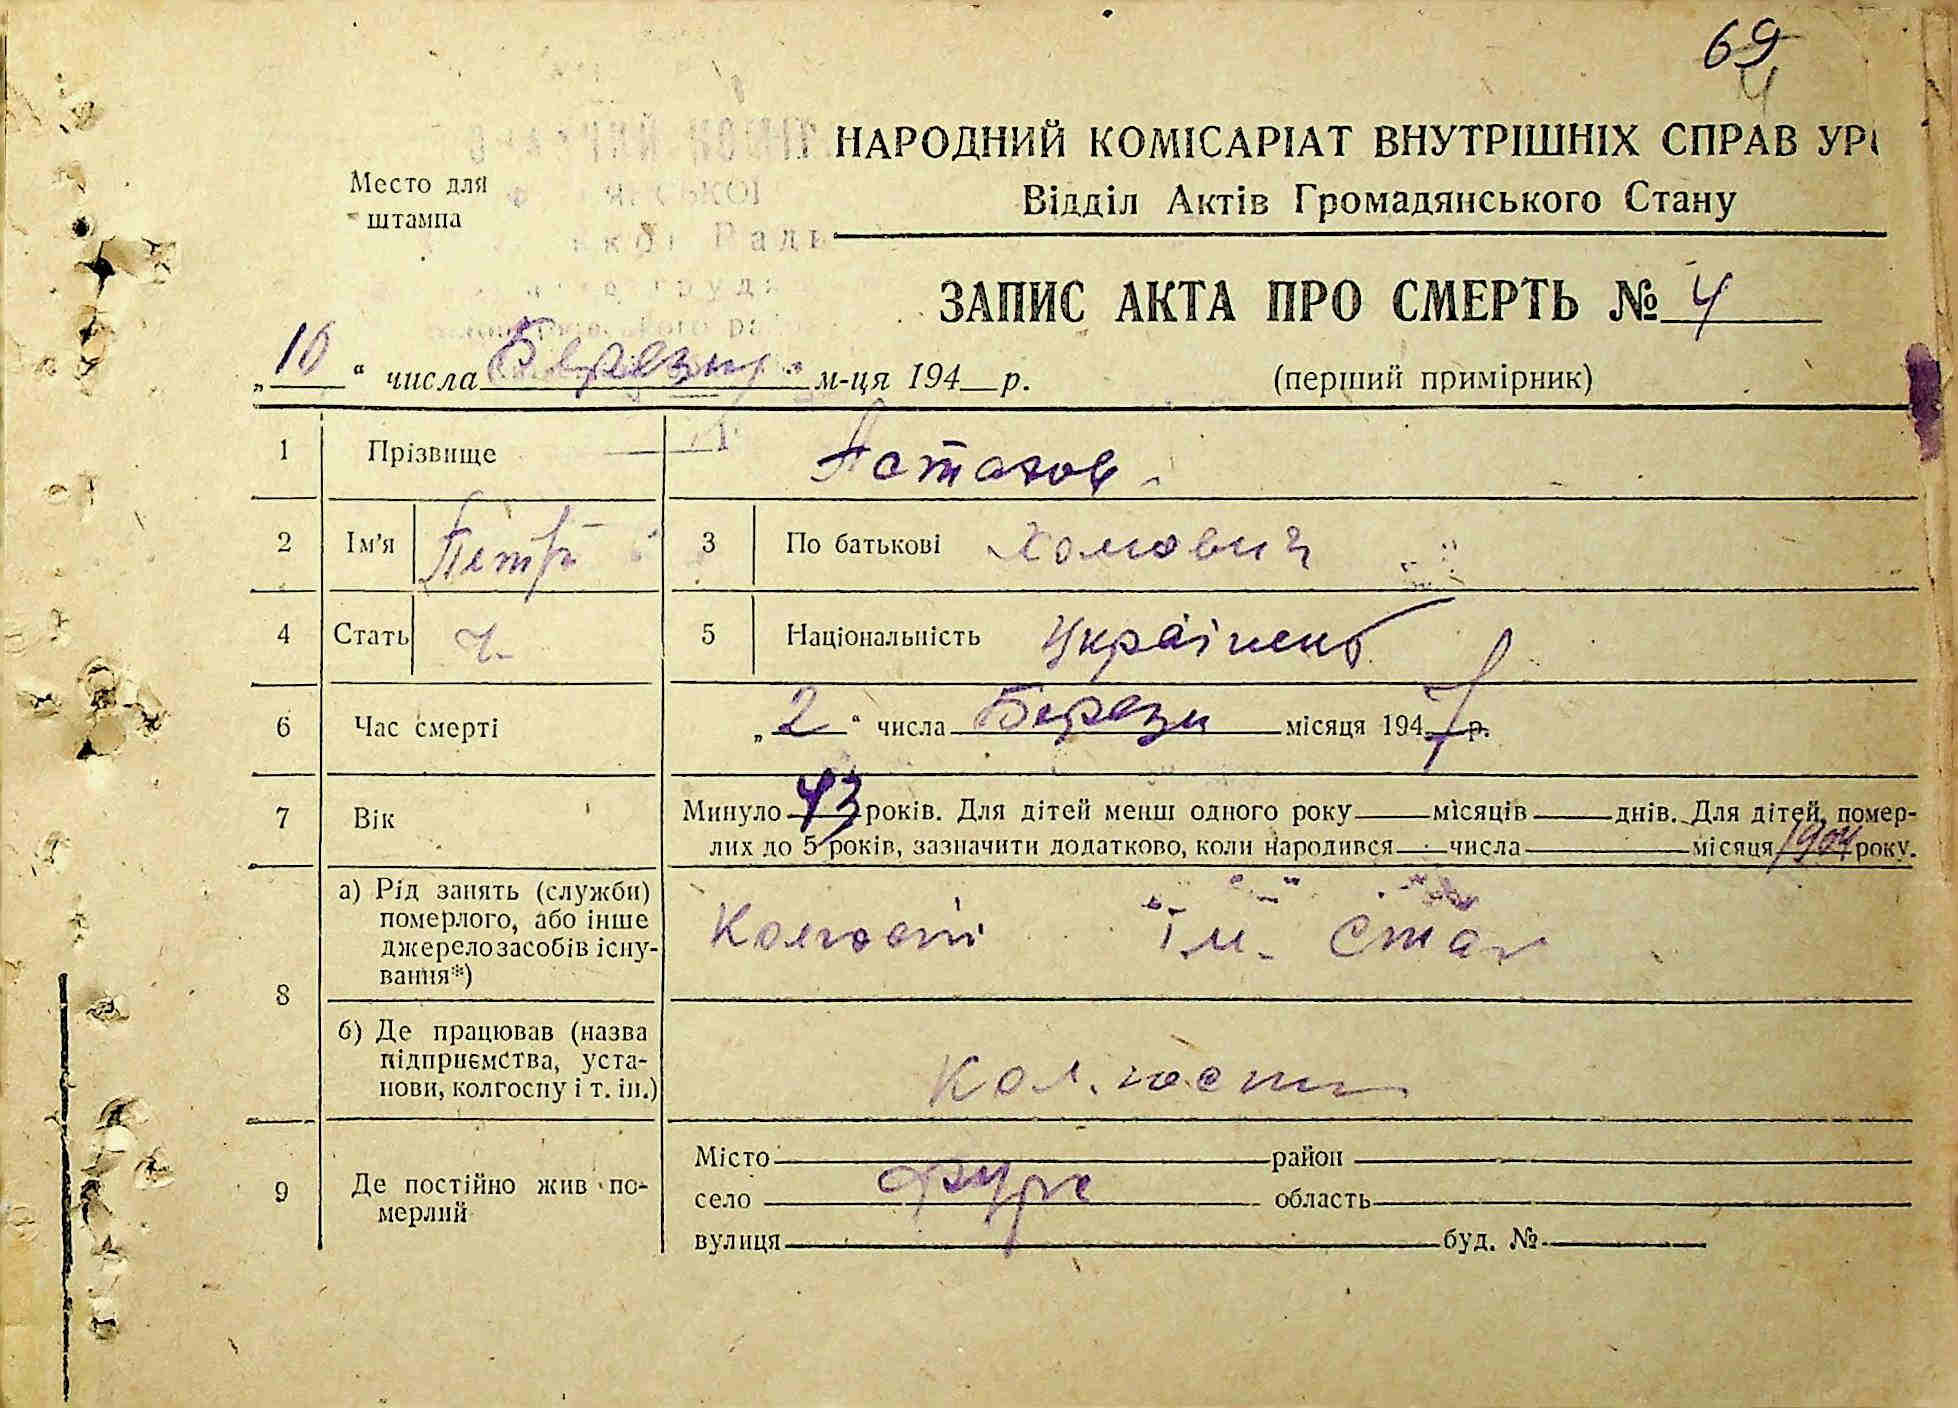 69
4
НАРОДНИЙ КОМІСАРІАТ ВНУТРІШНІХ СПРАВ УР
Место для штампа
Відділ Актів Громадянського Стану
ЗАПИС АКТА ПРО СМЕРТЬ № 4
„10“ числа Березня м-ця 194 р.
(перший примірник)
1 Прізвище Астахов
2 Ім'я Петро 3 По батькові Хомович
4 Стать ч. 5 Національність Українець
6 Час смерті „2“ числа Березня місяця 1947 р.
7 Вік Минуло 43 років. Для дітей менш одного року місяців днів. Для дітей, помер-
лих до 5 років, зазначити додатково, коли народився числа місяця 1904 року.
8 а) Рід занять (служби)
померлого, або інше
джерело засобів існу-
вання*)
Колгосп ім. Стал
б) Де працював (назва
підприємства, уста-
нови, колгоспу і т. ін.)
Кол.госпі
9 Де постійно жив по-
мерлий
Місто район
село область
вулиця буд. №